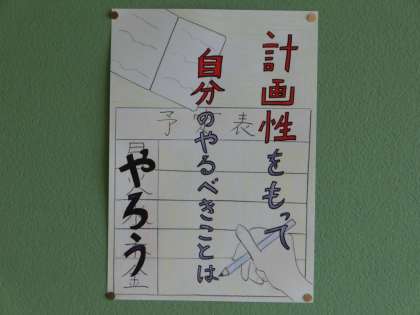 計画性をもって
自分のやるべきことは
やろう
予定表